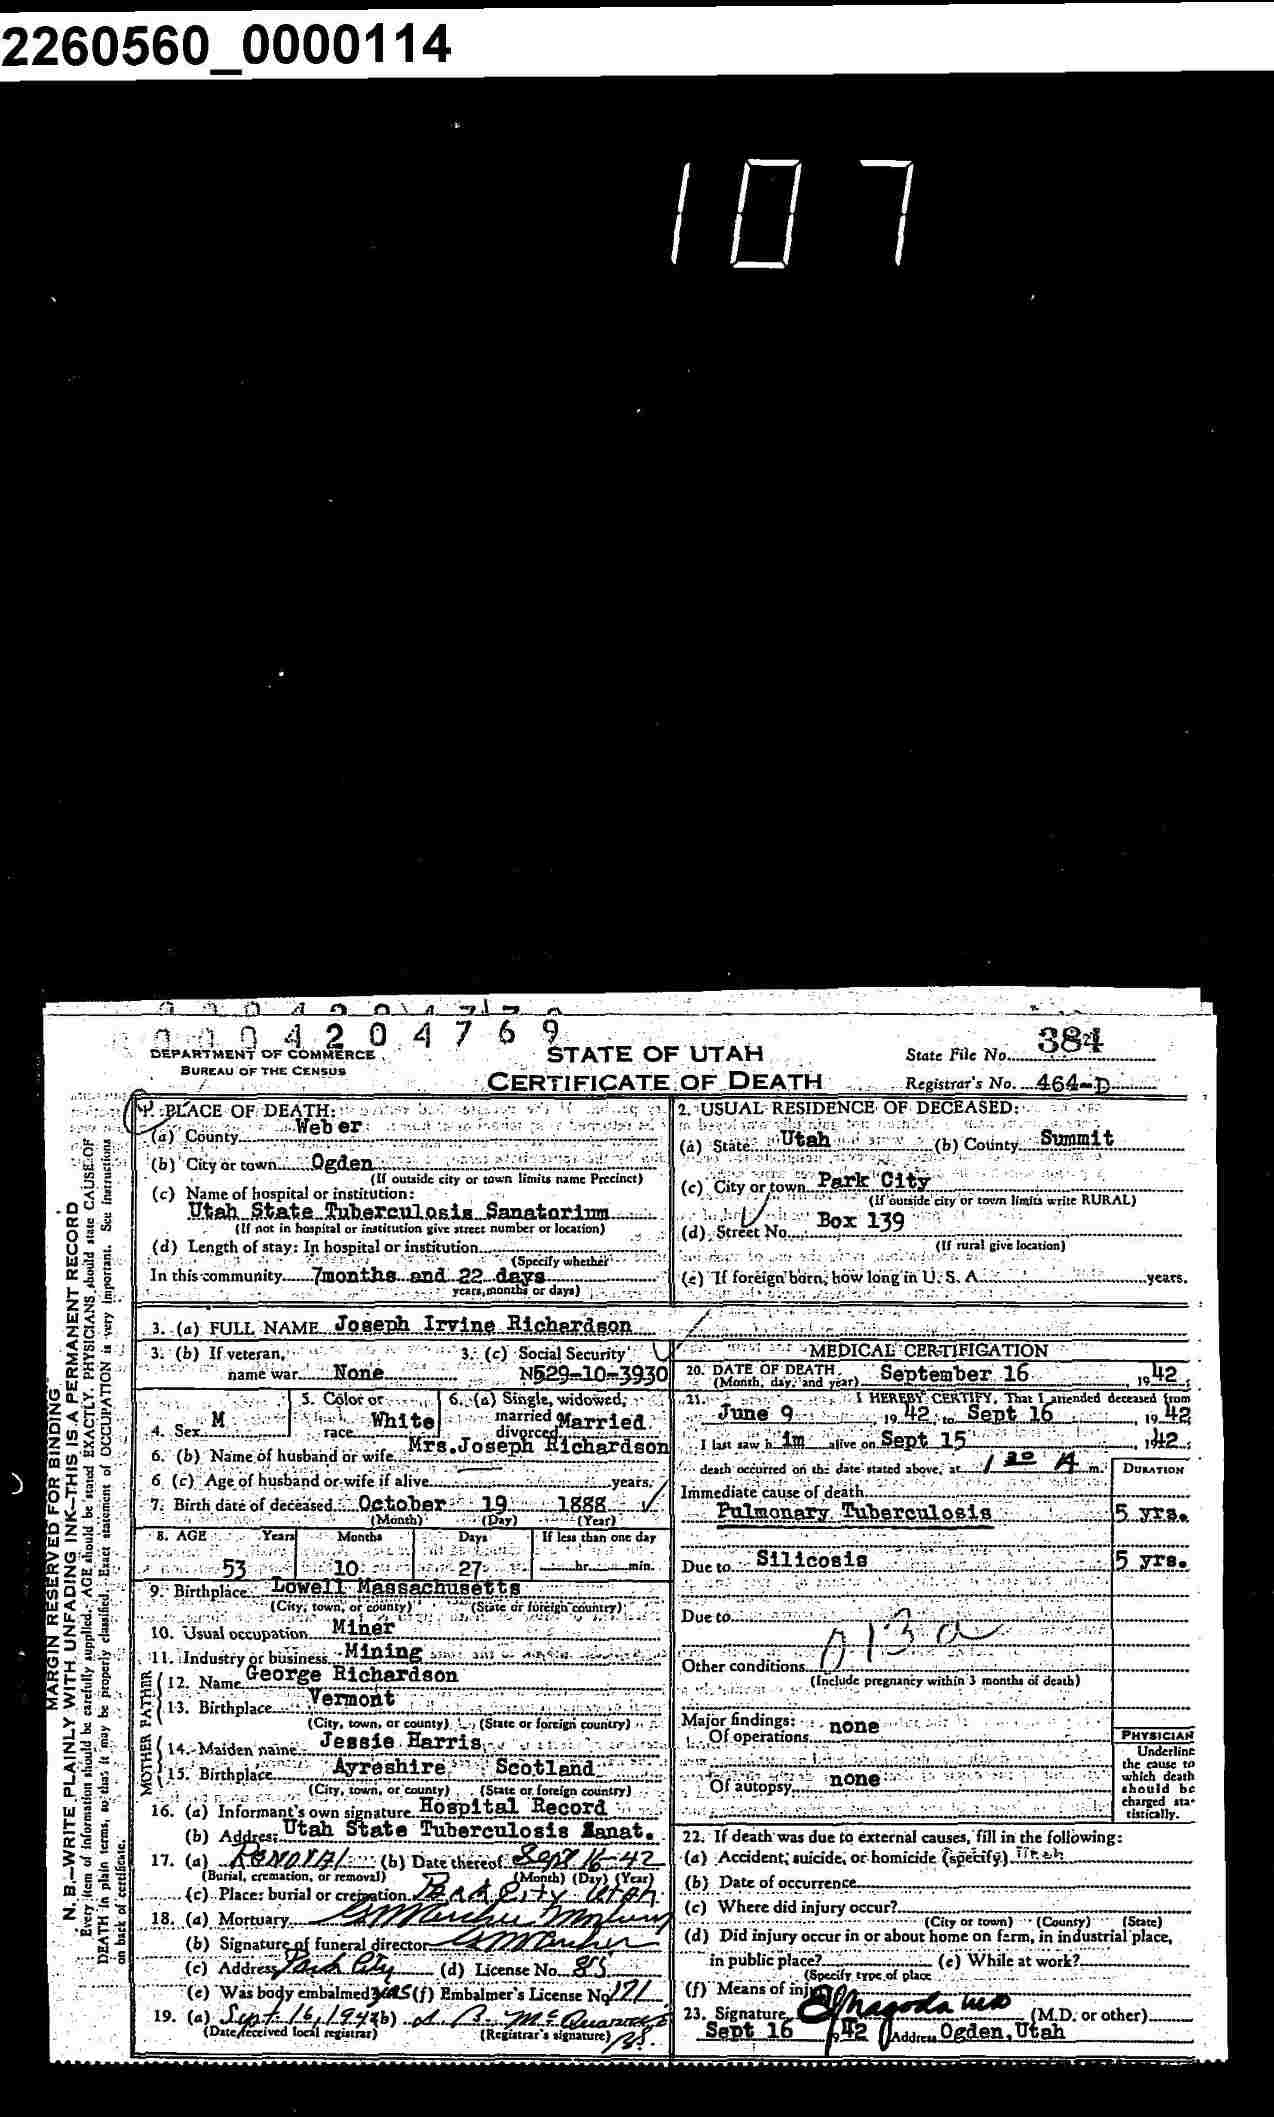 2260560_0000114
107
0004204769
DEPARTMENT OF COMMERCE
BUREAU OF THE CENSUS
STATE OF UTAH
CERTIFICATE OF DEATH
State File No. 384
Registrar's No. 464-D
1. PLACE OF DEATH:
(a) County Weber
(b) City or town Ogden
(If outside city or town limits name Precinct)
(c) Name of hospital or institution:
Utah State Tuberculosis Sanatorium
(If not in hospital or institution give street number or location)
(d) Length of stay: In hospital or institution
(Specify whether
In this community 7months and 22 days
years, months or days)
2. USUAL RESIDENCE OF DECEASED:
(a) State Utah (b) County Summit
(c) City or town Park City
(If outside city or town limits write RURAL)
(d) Street No. Box 139
(If rural give location)
(e) If foreign born, how long in U. S. A. years.
3. (a) FULL NAME Joseph Irvine Richardson
3. (b) If veteran,
name war None
3. (c) Social Security
N529-10-3930
4. Sex M
5. Color or
race White
6. (a) Single, widowed,
married Married
divorced
6. (b) Name of husband or wife Mrs.Joseph Richardson
6 (c) Age of husband or wife if alive years.
7. Birth date of deceased October 19 1888
(Month) (Day) (Year)
8. AGE Years Months Days If less than one day
53 10 27 hr. min.
9. Birthplace Lowell Massachusetts
(City, town, or county) (State or foreign country)
10. Usual occupation Miner
11. Industry or business Mining
FATHER
12. Name George Richardson
13. Birthplace Vermont
(City, town, or county) (State or foreign country)
MOTHER
14. Maiden name Jessie Harris
15. Birthplace Ayreshire Scotland
(City, town, or county) (State or foreign country)
16. (a) Informant's own signature Hospital Record
(b) Address Utah State Tuberculosis Sanat.
17. (a) Removal (b) Date thereof Sept 16-42
(Burial, cremation, or removal) (Month) (Day) (Year)
(c) Place: burial or cremation Park City Utah
18. (a) Mortuary
(b) Signature of funeral director
(c) Address Park City (d) License No. 85
(e) Was body embalmed? yes (f) Embalmer's License No 171
19. (a) Sept. 16, 1942 (b)
(Date received local registrar) (Registrar's signature)
MEDICAL CERTIFICATION
20. DATE OF DEATH September 16 1942;
(Month, day, and year)
21. I HEREBY CERTIFY, That I attended deceased from
June 9 1942, to Sept 16, 1942
I last saw h im alive on Sept 15, 1942;
death occurred on the date stated above, at 1 30 A m.
DURATION
Immediate cause of death
Pulmonary Tuberculosis 5 yrs.
Due to Silicosis 5 yrs.
Due to
Other conditions
(Include pregnancy within 3 months of death)
Major findings:
Of operations none
Of autopsy none
PHYSICIAN
Underline
the cause to
which death
should be
charged sta-
tistically.
22. If death was due to external causes, fill in the following:
(a) Accident, suicide, or homicide (specify)
(b) Date of occurrence
(c) Where did injury occur?
(City or town) (County) (State)
(d) Did injury occur in or about home on farm, in industrial place,
in public place? (e) While at work?
(Specify type of place
(f) Means of injury
23. Signature (M.D. or other)
Sept 16 1942 Address Ogden, Utah
MARGIN RESERVED FOR BINDING
N. B.—WRITE PLAINLY WITH UNFADING INK—THIS IS A PERMANENT RECORD
Every item of information should be carefully supplied. AGE should be stated EXACTLY. PHYSICIANS should state CAUSE OF
DEATH in plain terms, so that it may be properly classified. Exact statement of OCCUPATION is very important. See instructions
on back of certificate.